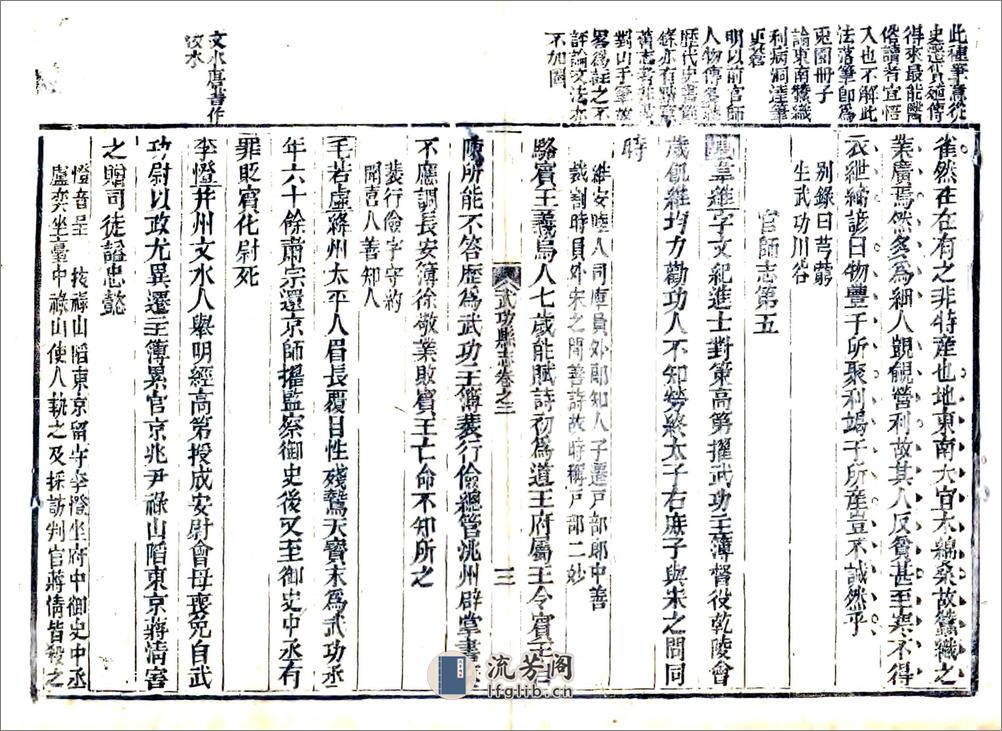 此種筆意從
史遷貨殖傳
得來最能醫
俗讀者宜悟
入也不解此
法落筆即為
兎園冊子
論東南蠶織
利病洞達筆
明以前官師
人物傳
歷代史書
志者
對山于筆
畧為註之不
評論文法亦
不加圈
文水唐書作
汶水
雀然在在有之非特産也地東南大宜木綿桑故蠶織之
業廣焉然多為細人覬覦營利故其人反貧甚至寒不得
衣紲縞諺曰物豐于所聚利竭于所産豈不誠然乎
别錄曰芎藭
生武功川谷
官師志第五
韋維字文紀進士對策高第擢武功主薄督役乾陵會
歲飢維均力勸功人不知勞終太子右庶子與宋之問同
時
維安睦人司庫員外郎知人子遷戸部郎中善
裁割時員外宋之問善詩故時稱戸部二妙
駱賓王義烏人七歲能賦詩初為道王府屬王令賓王自
陳所能不答歷為武功主薄裴行儉總管洮州辟掌書
不應調長安簿徐敬業敗賓王亡命不知所之
裴行儉字守約
聞喜人善知人
毛若虛絳州太平人眉長覆目性殘鷙天寶末為武功丞
年六十餘肅宗還京師擢監察御史後又至御史中丞有
罪貶賓化尉死
李憕并州文水人舉明經高第授成安尉會母喪免自武
功尉以政尤異遷主簿累官京兆尹祿山陷東京蔣清害
之贈司徒謚忠懿
憕音呈 按祿山陷東京留守李憕坐府中御史中丞
盧奕坐臺中祿山使人執之及採訪判官蔣倩皆殺之
武功縣志卷之三
三
流芳阁
lfglib.cn